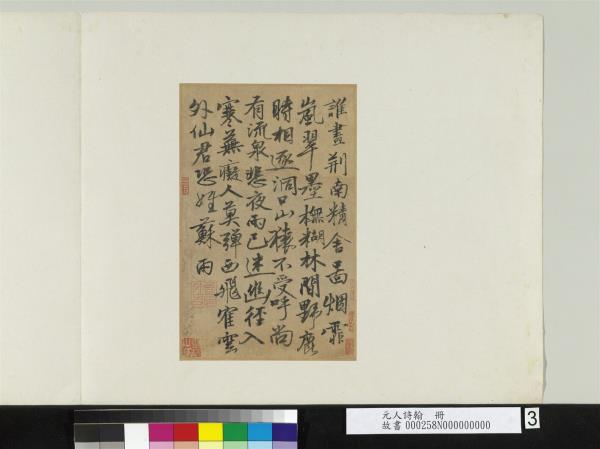 誰畫荊南精舍圖烟霏
嵐翠墨橅糊林間野鹿
時相逐洞口山猿不受呼尚
有流泉悲夜雨已迷幽徑入
寒蕪癡人莫彈西飛寉雲
外仙君恐姓蘇 雨
元人詩翰 冊
故書 000258N000000000
3